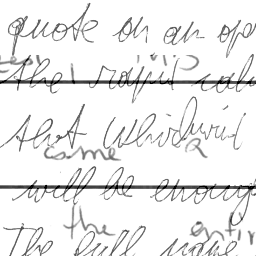 quote on an ope
the rapid valu
that which
came a
will be enoug
the entir
The full name